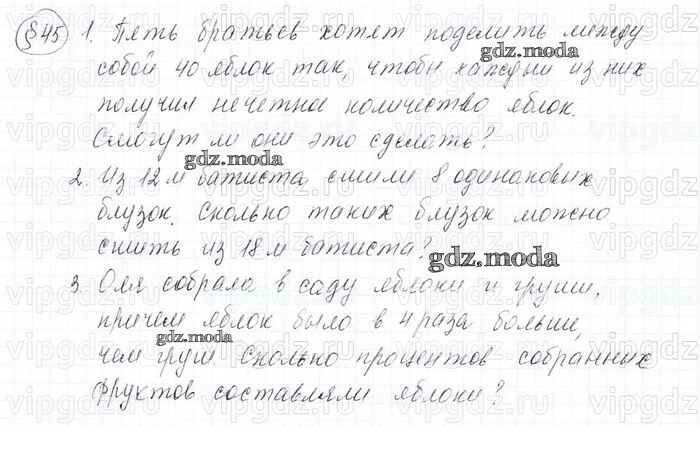 §45 1. Пять братьев хотят поделить между
собой 40 яблок так, чтобы каждый из них
получил нечетное количество яблок.
Смогут ли они это сделать?
2. Из 12 м батиста сшили 8 одинаковых
блузок. Сколько таких блузок можно
сшить из 18 м батиста?
3. Оля собрала в саду яблоки и груши,
причем яблок было в 4 раза больше,
чем груш. Сколько процентов собранных
фруктов составляли яблоки?
gdz.moda
gdz.moda
gdz.moda
gdz.moda
vipgdz